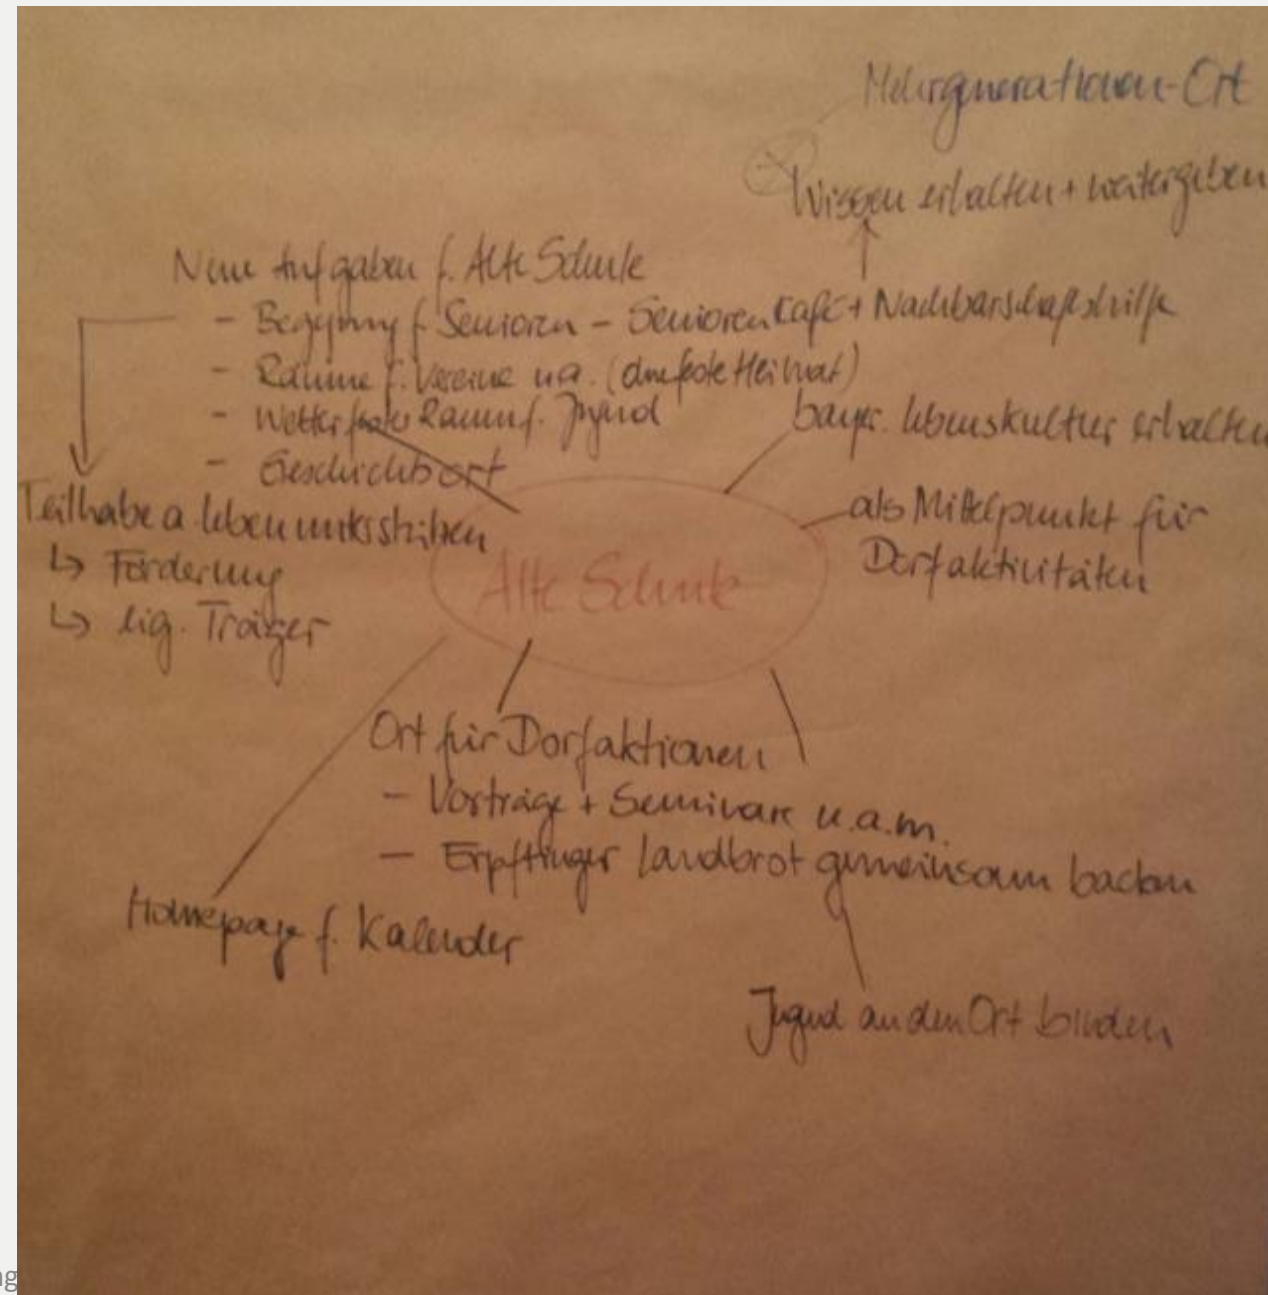 Mehrgenerationen-Ort
Wissen erhalten + weitergeben
Neue Aufgaben f. Alte Schule
- Begegnung f. Senioren - Seniorencafé + Nachbarschaftshilfe
- Räume f. Vereine u.a. (ohne feste Heimat)
- Wetterfester Raum f. Jugend
- Geschichtsort
bayer. Lebenskultur erhalten
Teilhabe a. Leben unterstützen
↳ Förderung
↳ eig. Träger
als Mittelpunkt für
Dorfaktivitäten
Alte Schule
Ort für Dorfaktionen
- Vorträge + Seminare u.a.m.
- Erpftinger Landbrot gemeinsam backen
Homepage f. Kalender
Jugend an den Ort binden